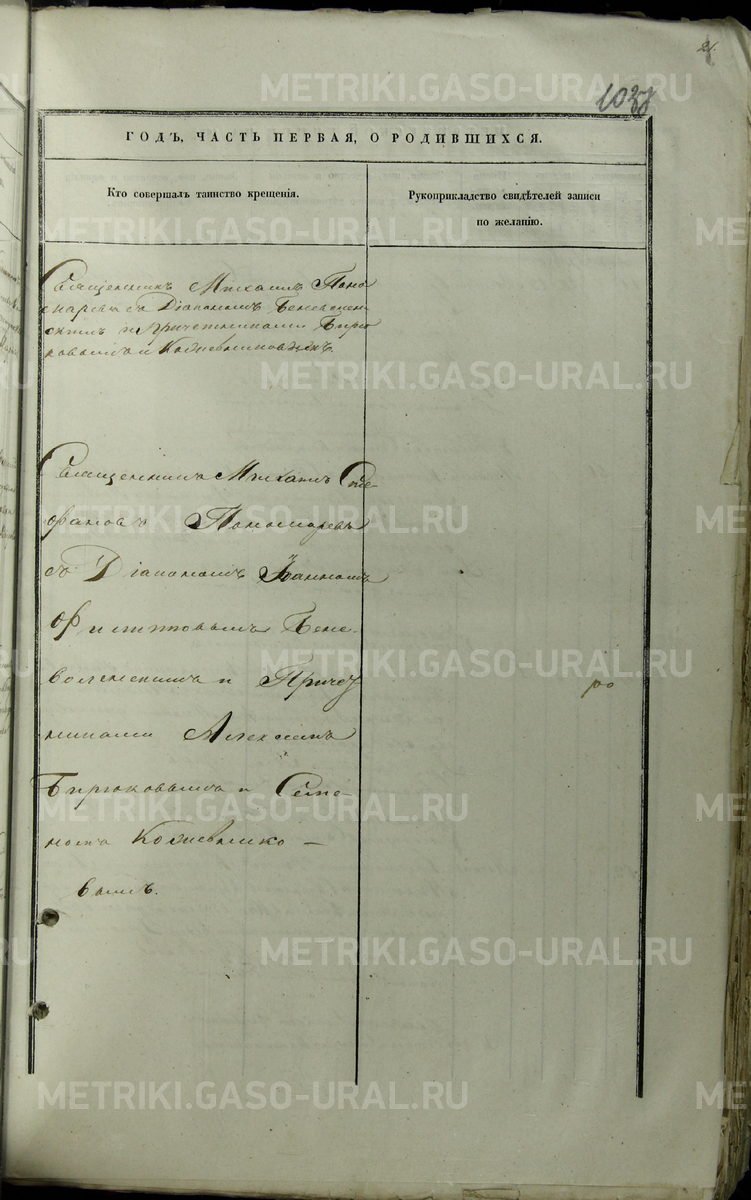 21.
1033
ГОДЪ, ЧАСТЬ ПЕРВАЯ, О РОДИВШИХСЯ.
Кто совершалъ таинство крещенія.
Рукоприкладство свидѣтелей записи
по желанію.
Священникъ Михаилъ Поно
маревъ съ Діакономъ Беневолен-
скимъ и причетниками Бирю
ковымъ и Кожевниковымъ.
Священникъ Михаилъ Сте-
фановъ Пономаревъ
съ Діакономъ Іоанномъ
Филипповымъ Бене-
воленскимъ и Причет
никами Алексѣемъ
Бирюковымъ и Семе-
номъ Кожевнико-
вымъ.
METRIKI.GASO-URAL.RU